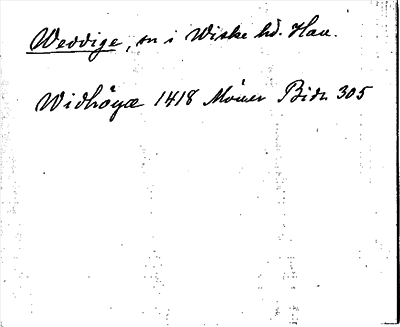 Weddige, sn i Wiske hd. Hall.
Widhöyæ 1418 Mörner Bidr. 305